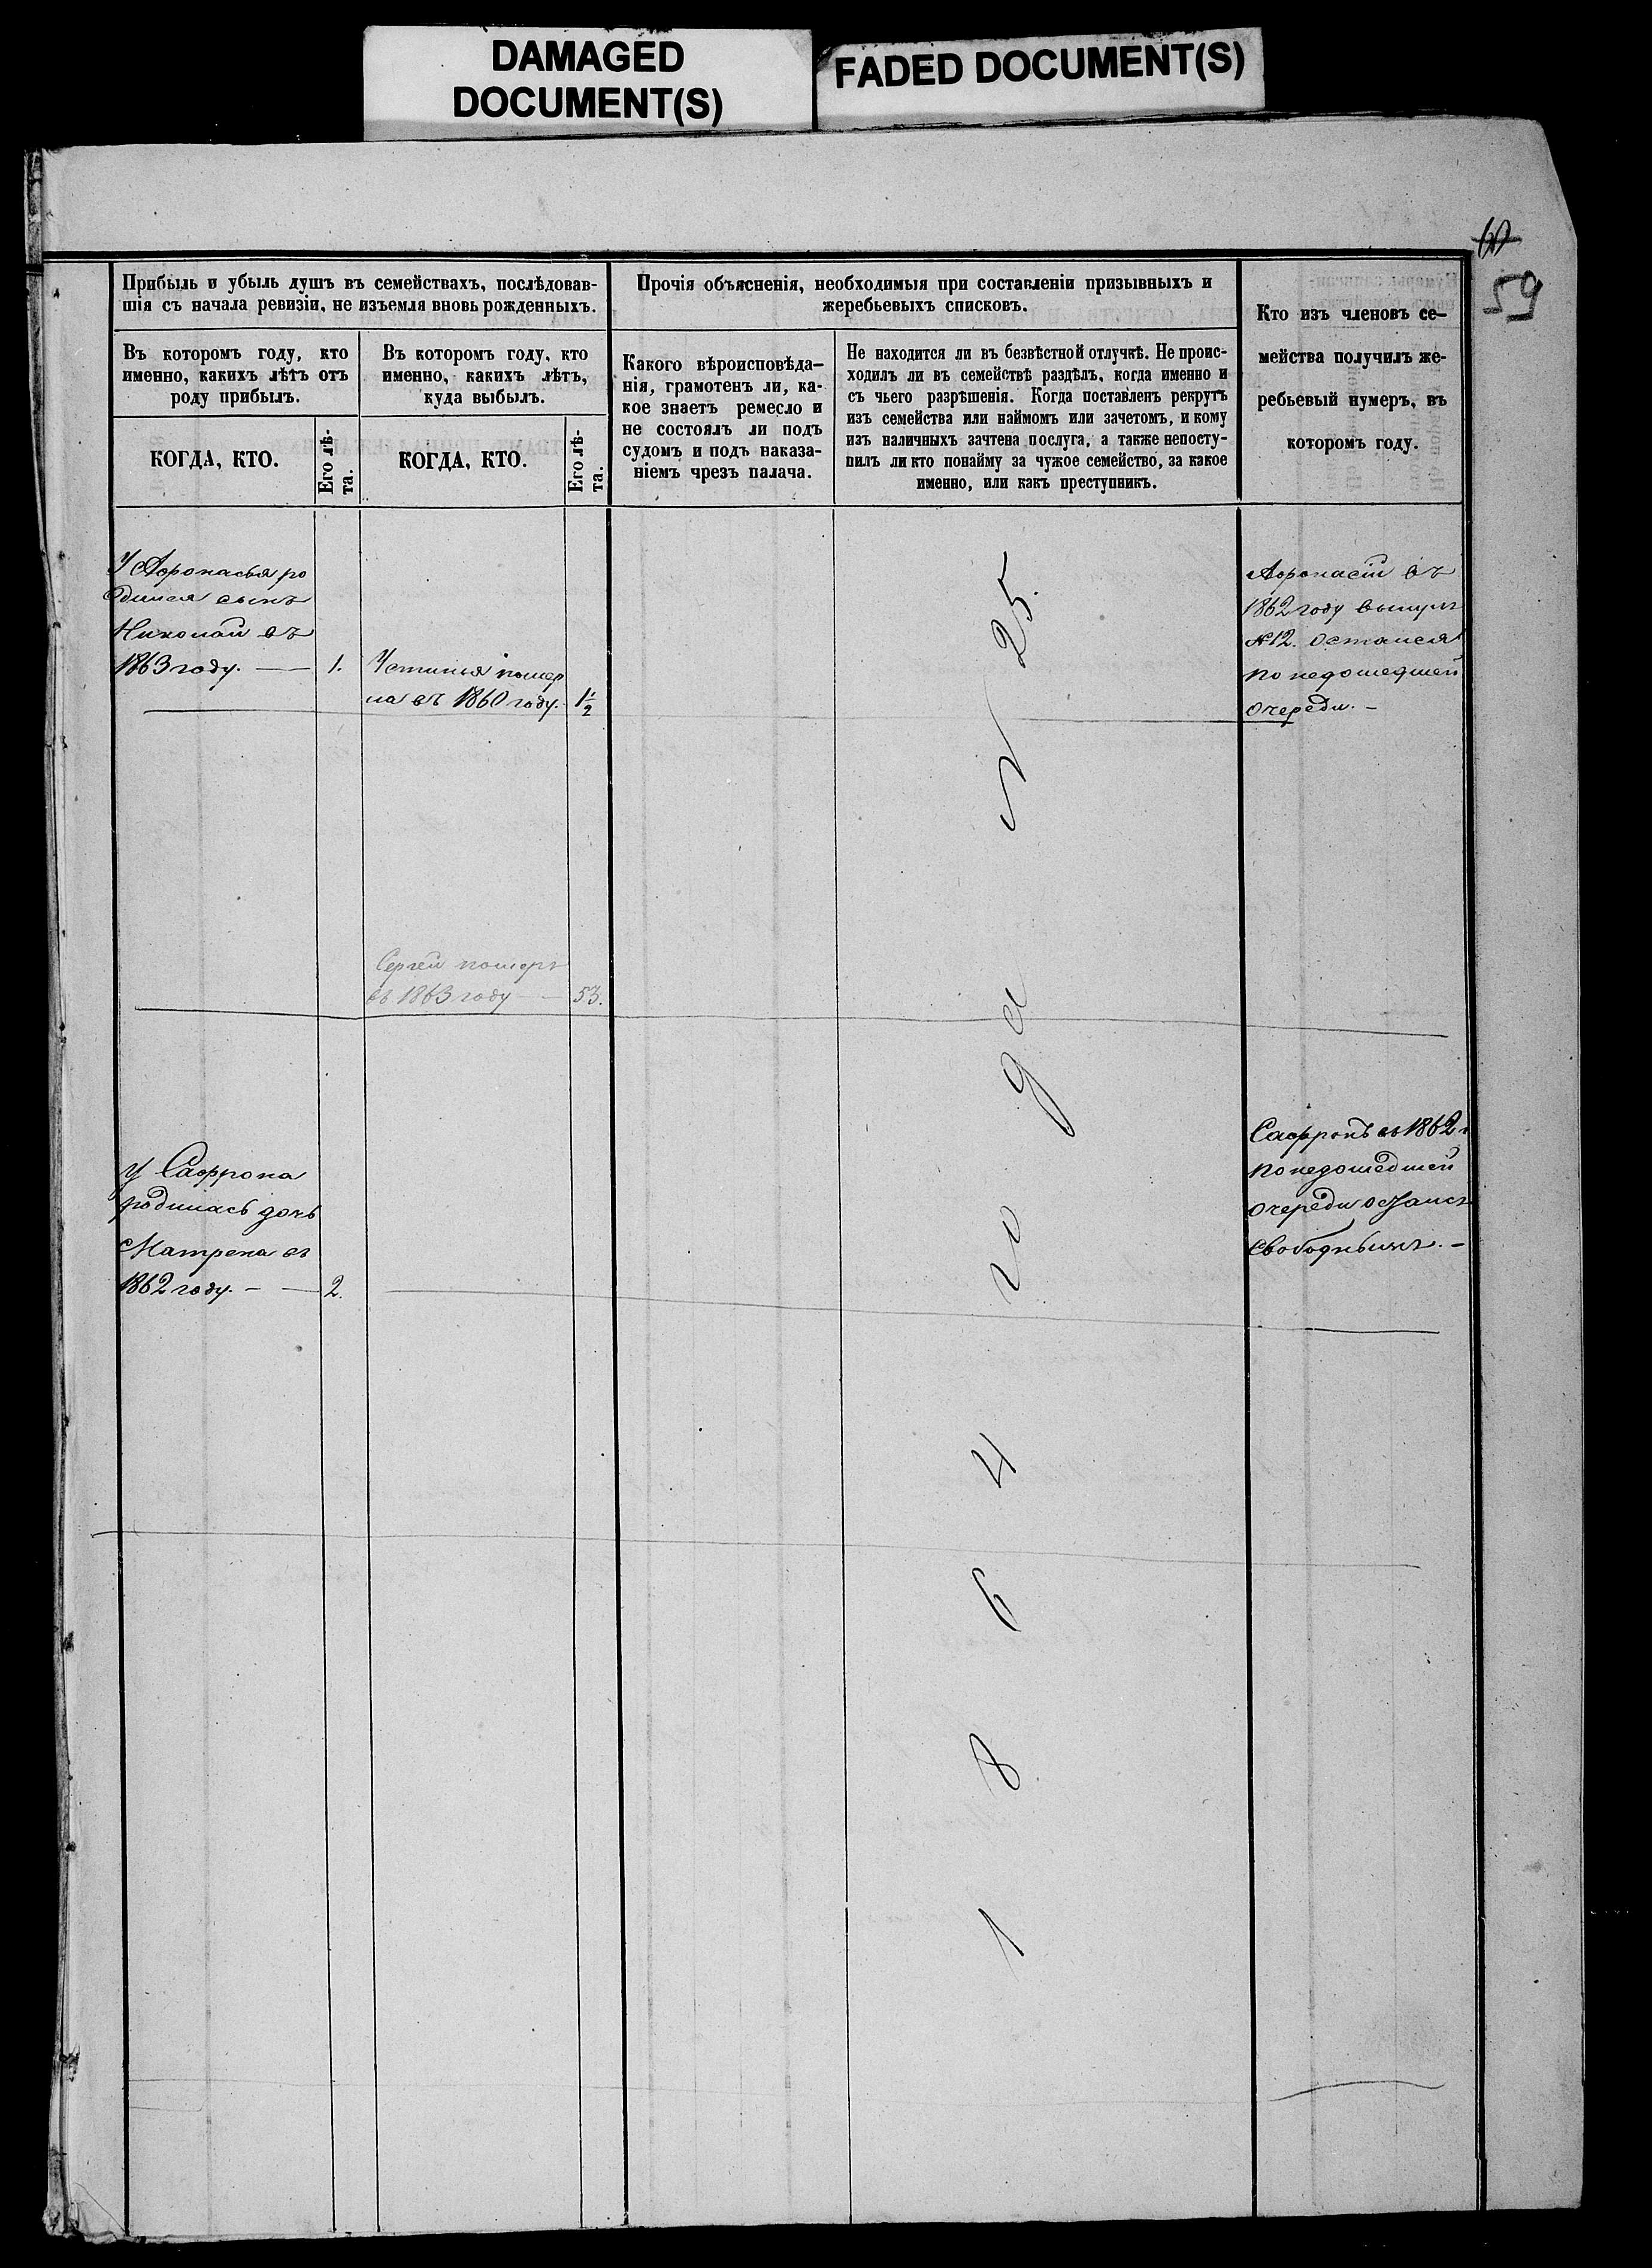 DAMAGED
DOCUMENT(S)
FADED DOCUMENT(S)
59
Прибыль и убыль душъ въ семействахъ, послѣдовав-
шія съ начала ревизіи, не изъемля вновь рожденныхъ.
Въ которомъ году, кто
именно, какихъ лѣтъ отъ
роду прибылъ.
КОГДА, КТО.
Его лѣ-
та.
Въ которомъ году, кто
именно, какихъ лѣтъ,
куда выбылъ.
КОГДА, КТО.
Его лѣ-
та.
Прочія объясненія, необходимыя при составленіи призывныхъ и
жеребьевыхъ списковъ.
Какого вѣроисповѣда-
нія, грамотенъ ли, ка-
кое знаетъ ремесло и
не состоялъ ли подъ
судомъ и подъ наказа-
ніемъ чрезъ палача.
Не находится ли въ безвѣстной отлучкѣ. Не проис-
ходилъ ли въ семействѣ раздѣлъ, когда именно и
съ чьего разрѣшенія. Когда поставленъ рекрутъ
изъ семейства или наймомъ или зачетомъ, и кому
изъ наличныхъ зачтена послуга, а также непосту-
пилъ ли кто понайму за чужое семейство, за какое
именно, или какъ преступникъ.
Кто изъ членовъ се-
мейства получилъ же-
ребьевый нумеръ, въ
которомъ году.
У Афонасья ро
дился сынъ
Николай въ
1863 году. — 1.
Устинья помер
ла въ 1860 году. 1 1/2
Афонасій въ
1862 году вынулъ
№ 12. остался
по недошедшей
очереди. -
Сергей померъ
въ 1863 году — 53.
У Сафрона
родилась дочь
Матрена въ
1862 году. - — 2.
Сафронъ въ 1862 г
по недошедшей
очереди осталсь
свободнымъ. -
1864 года 25.